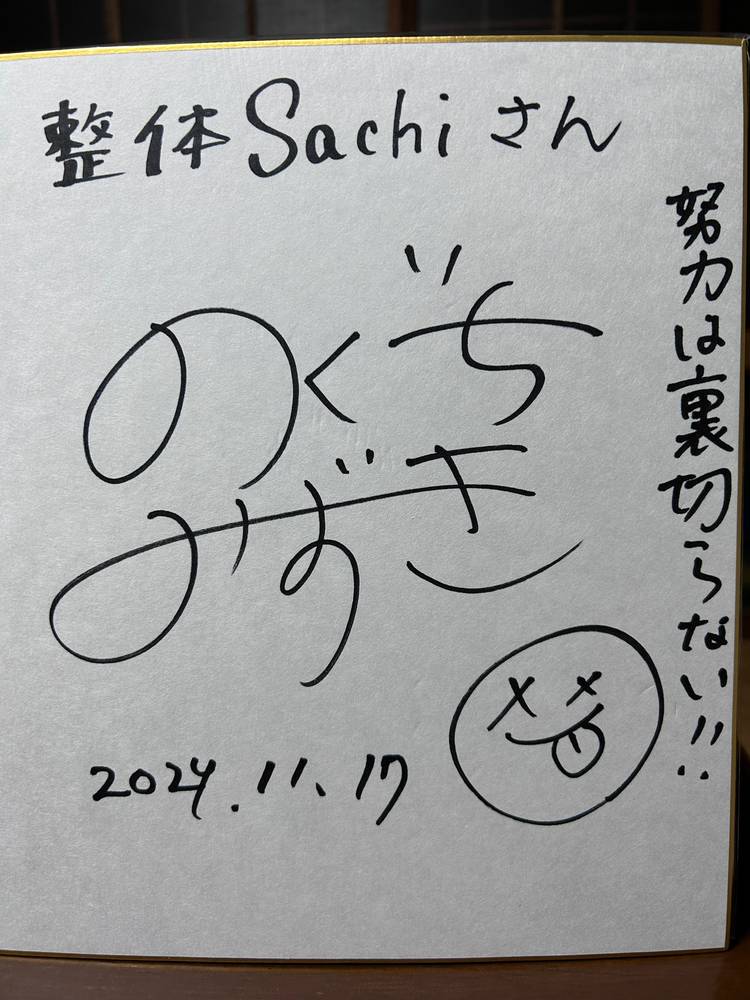 整体Sachiさん
努力は裏切らない!!
のぐち
みずき
2024.11.17